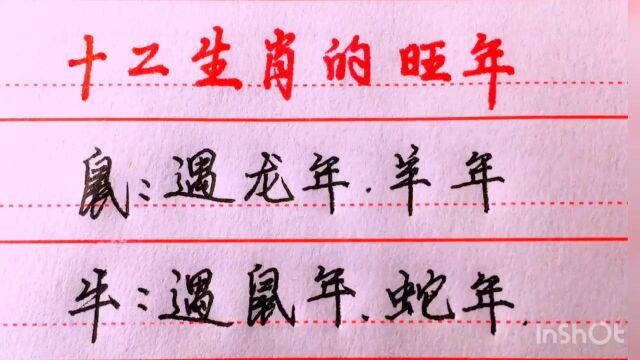 十二生肖的旺年
鼠:遇龙年.羊年
牛:遇鼠年.蛇年.
InShOt